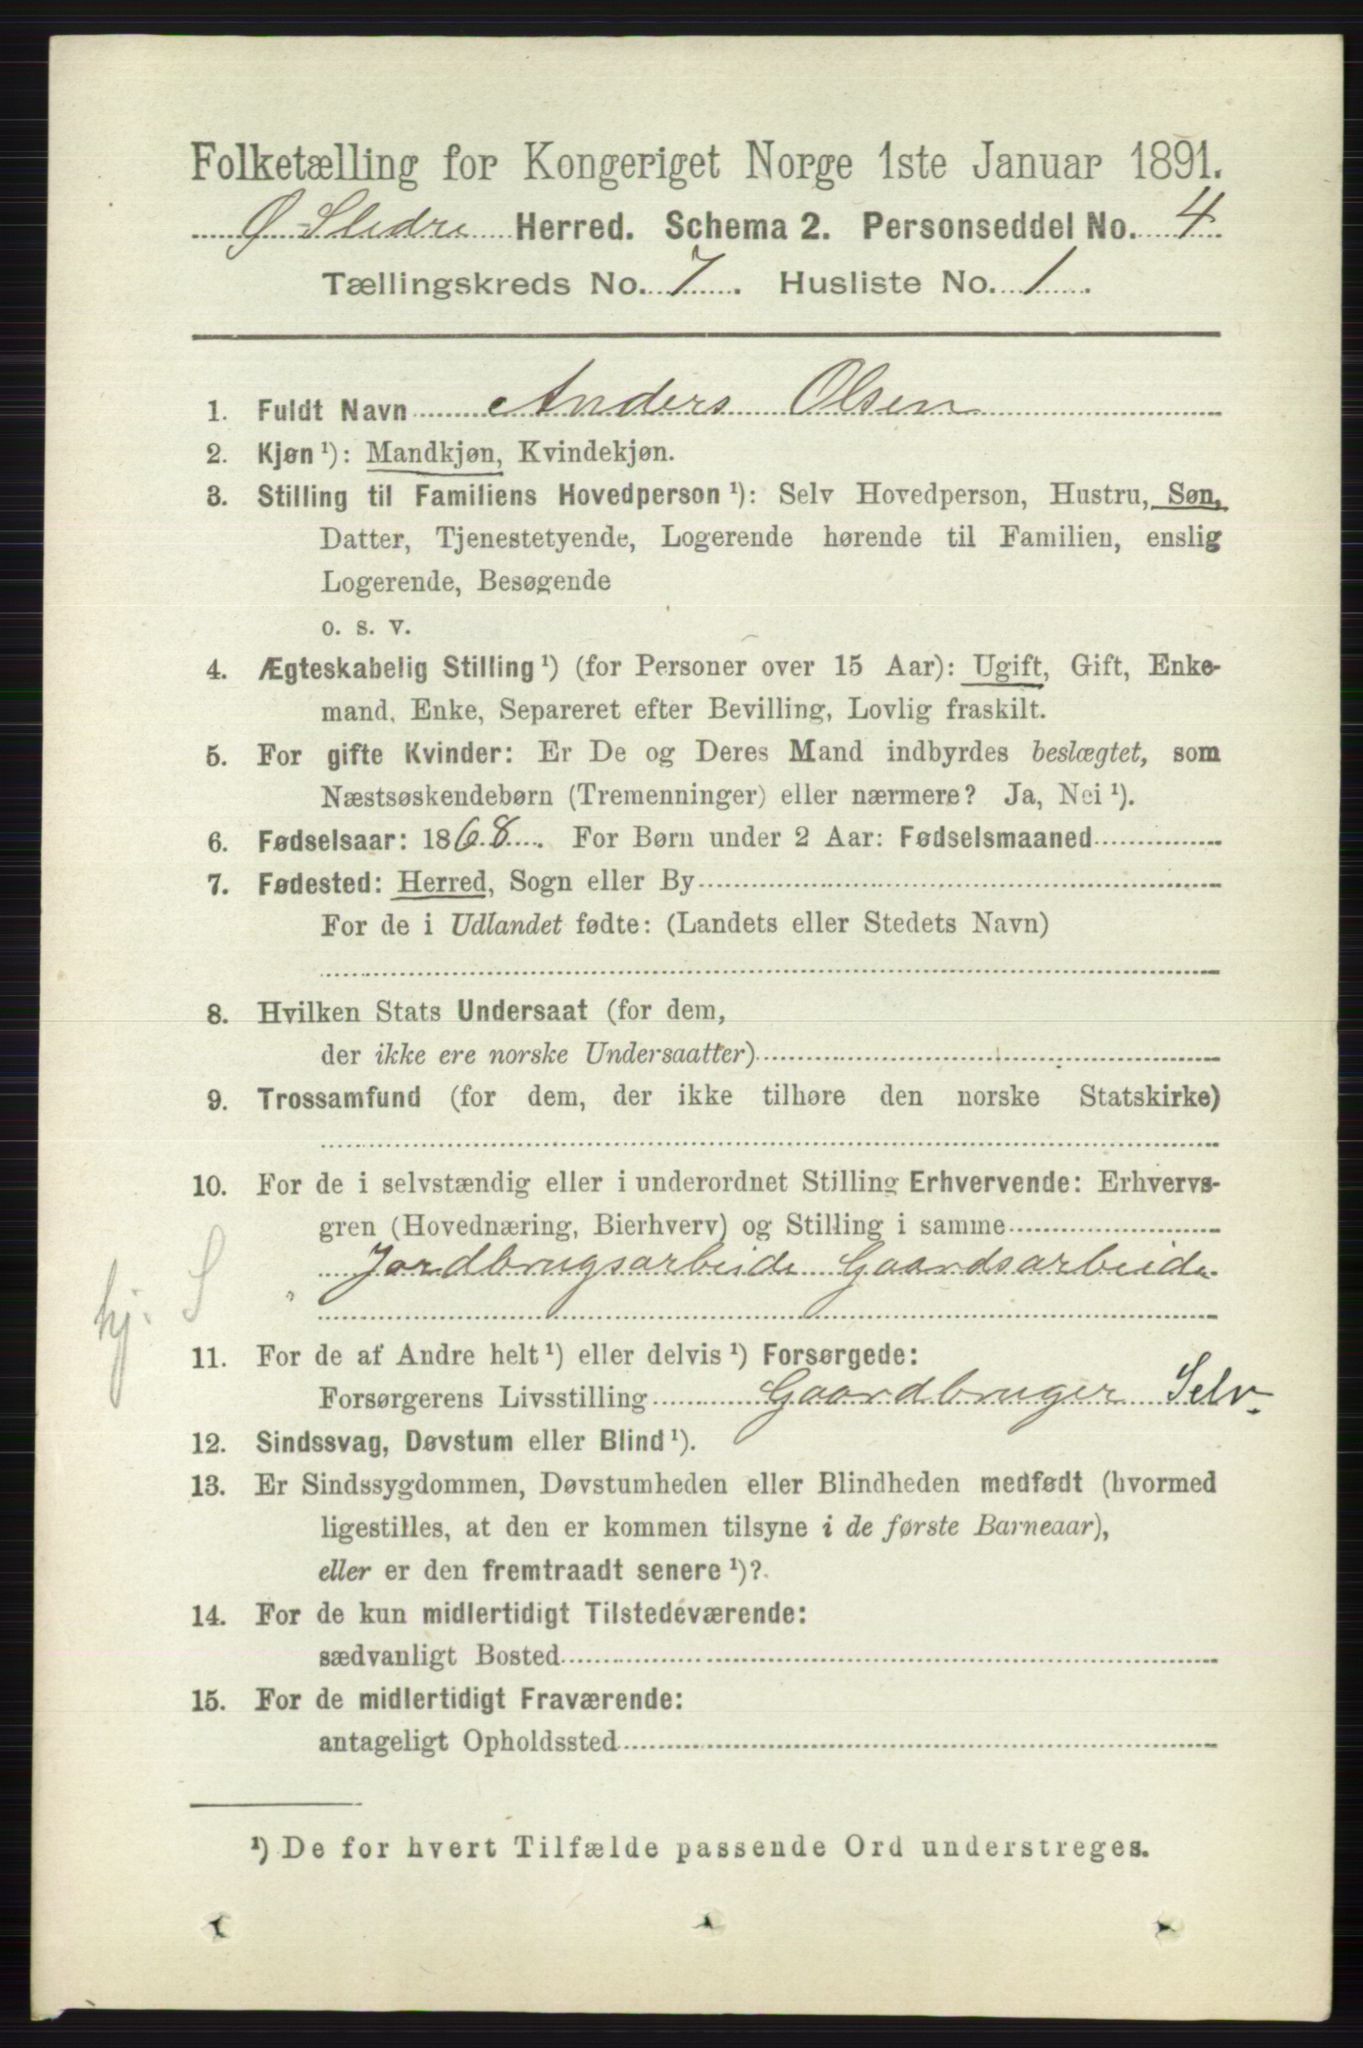 Folketælling for Kongeriget Norge 1ste Januar 1891.
Ø. Slidre Herred. Schema 2. Personseddel No. 4
Tællingskreds No. 7. Husliste No. 1.
1. Fuldt Navn Anders Olsen
2. Kjøn ¹): Mandkjøn, Kvindekjøn.
3. Stilling til Familiens Hovedperson ¹): Selv Hovedperson, Hustru, Søn,
Datter, Tjenestetyende, Logerende hørende til Familien, enslig
Logerende, Besøgende
o. s. v.
4. Ægteskabelig Stilling ¹) (for Personer over 15 Aar): Ugift, Gift, Enke-
mand, Enke, Separeret efter Bevilling, Lovlig fraskilt.
5. For gifte Kvinder: Er De og Deres Mand indbyrdes beslægtet, som
Næstsøskendebørn (Tremenninger) eller nærmere? Ja, Nei ¹).
6. Fødselsaar: 1868. For Børn under 2 Aar: Fødselsmaaned
7. Fødested: Herred, Sogn eller By
For de i Udlandet fødte: (Landets eller Stedets Navn)
8. Hvilken Stats Undersaat (for dem,
der ikke ere norske Undersaatter)
9. Trossamfund (for dem, der ikke tilhøre den norske Statskirke)
10. For de i selvstændig eller i underordnet Stilling Erhvervende: Erhvervs-
gren (Hovednæring, Bierhverv) og Stilling i samme
Jordbrugsarbeide Gaardsarbeide
hj. S
11. For de af Andre helt ¹) eller delvis ¹) Forsørgede:
Forsørgerens Livsstilling Gaardbruger Selv.
12. Sindssvag, Døvstum eller Blind ¹).
13. Er Sindssygdommen, Døvstumheden eller Blindheden medfødt (hvormed
ligestilles, at den er kommen tilsyne i de første Barneaar),
eller er den fremtraadt senere ¹)?
14. For de kun midlertidigt Tilstedeværende:
sædvanligt Bosted
15. For de midlertidigt Fraværende:
antageligt Opholdssted
¹) De for hvert Tilfælde passende Ord understreges.